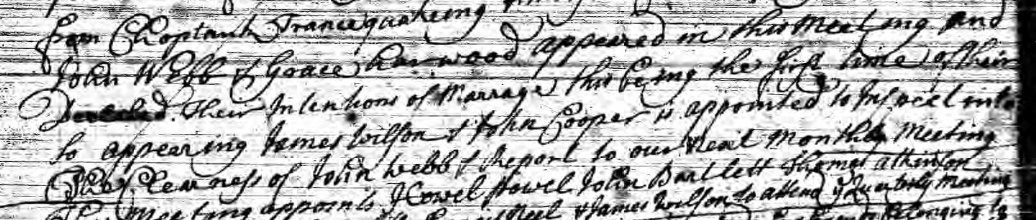 from Choptank Trancequakeing
John Webb & Grace Harwood appeared in this Meeting and
Their Intentions of Marrage this being the first time of their
so appearing James Wilson & John Cooper is appointed to Inspect into
The Clearness of John Webb & Report to our Next Monthly Meeting
This Meeting appoints Howel Powel John Bartlett Thomas Atkinson
& James Wilson to attend ye Quarterly Meeting
belonging to